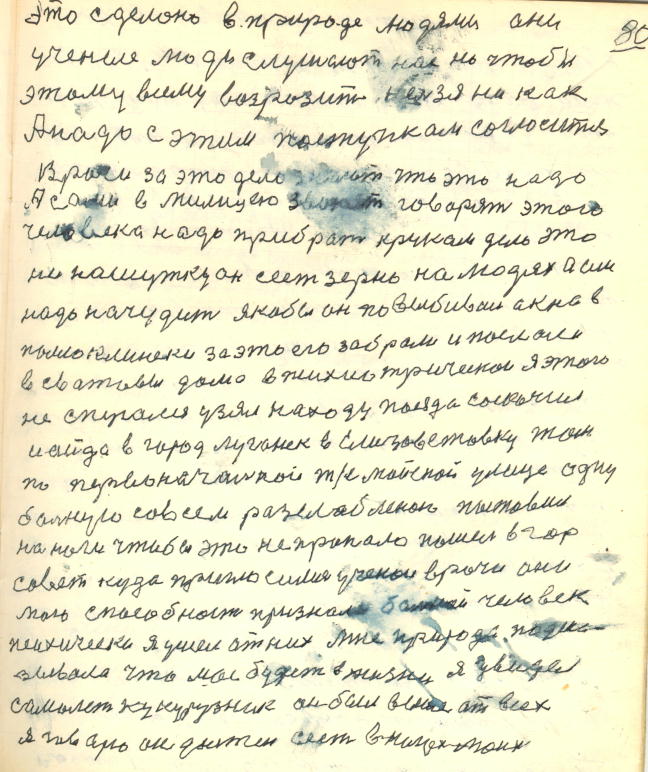 80
Это сделоно в природе людями они
ученые люди слушают нас но чтобы
этому всему возрозить нельзя ни как
А надо с этим поступкам соглоситя
Врачи за это дело знают что это надо
А сами в милицею звонят говорят этого
человека надо прибрат крукам дель это
не нашутку он сеет зерно на людях А сам
надо начудит якобы он повыбивал акна в
поликлинеки за это его забрали и послали
в Сватовы дома в психиотрической я этого
не спугался узял находу поезда соскочил
и айда в город луганск в Елизоветовку там
по первоначалной майской улице одну
болную совсем разслабленою поставил
на ноги чтобы это не пропало пошел в гор
совет куда пригласили ученои врачи они
мою способност признали болной человек
психически Я ушел от них мне природа подка-
зывала что мое будет в жизни я увидел
самолет кукурузник он был выше от всех
я говарю он должен сеет в полях моих